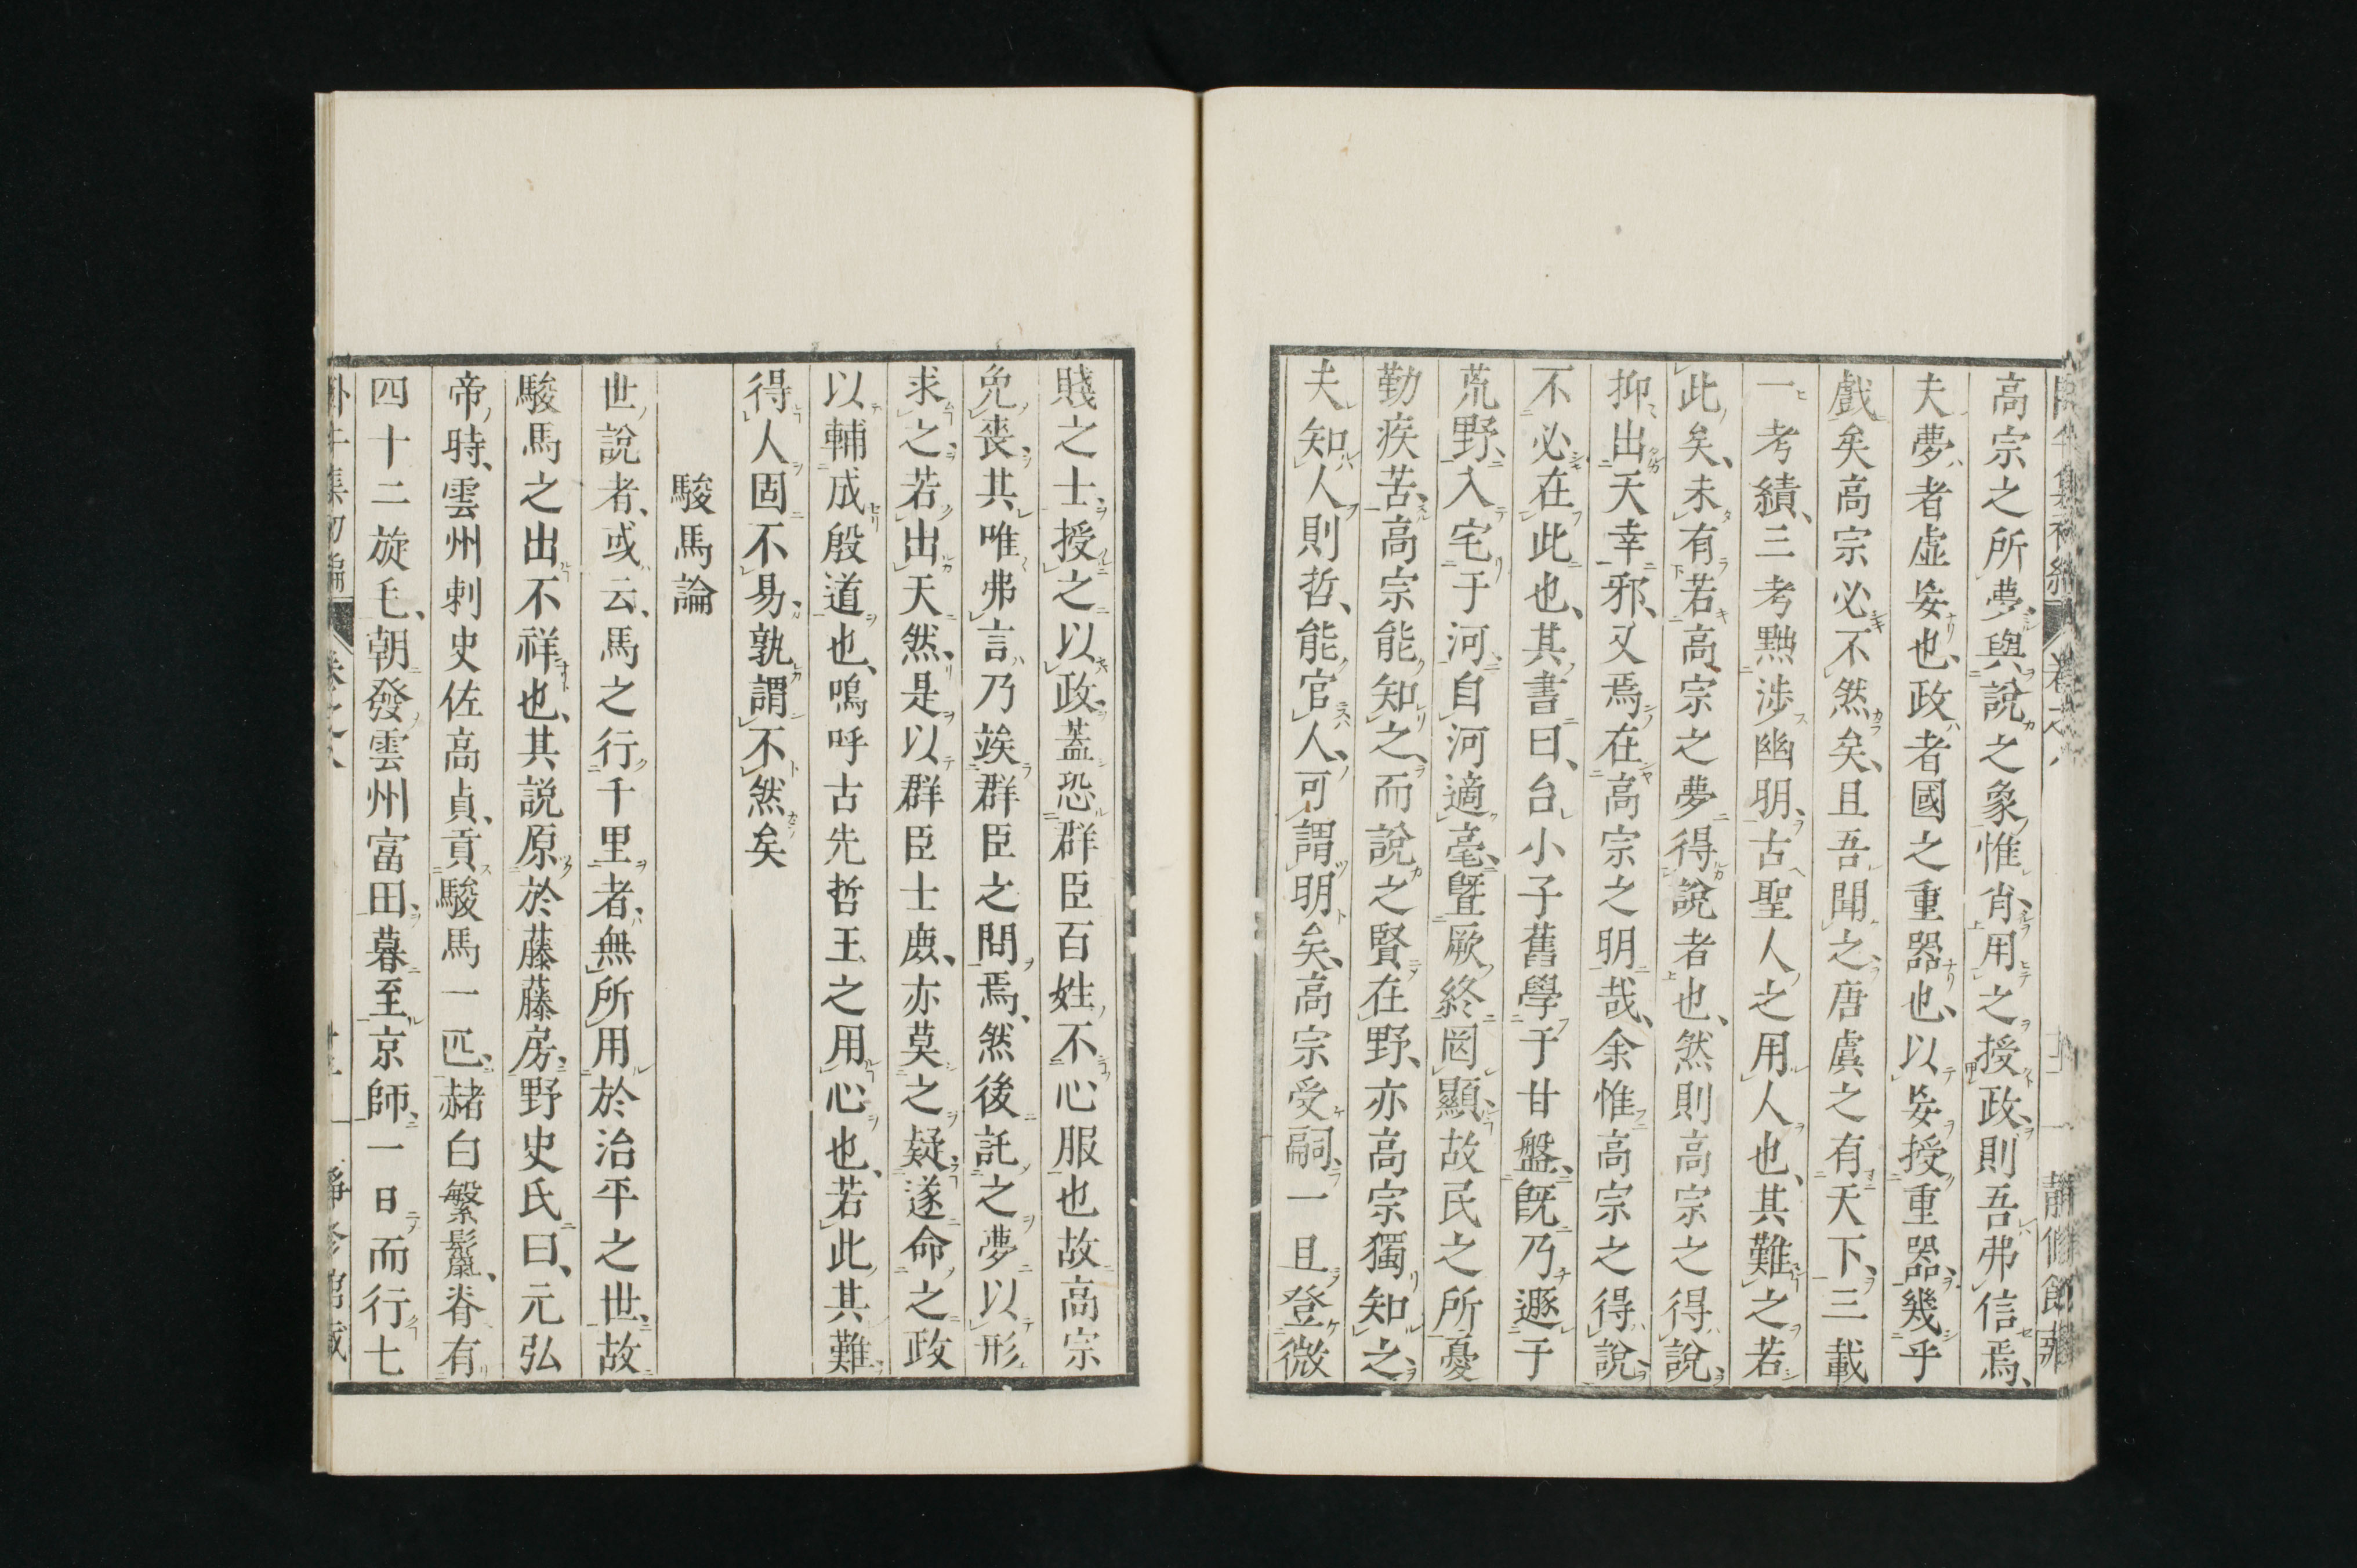 高宗之所夢與說之象惟肖、用之授政、則吾弗信焉、
夫夢者虛妄也、政者國之重器也、以妄授重器、幾乎
戲矣高宗必不然矣、且吾聞之、唐虞之有天下、三載
一考績、三考黜渉幽明、古聖人之用人也、其難之若
此矣、未有若高宗之夢得說者也、然則高宗之得說、
抑出天幸邪、又焉在高宗之明哉、余惟高宗之得說、
不必在此也、其書曰、台小子舊學于甘盤、旣乃遯于
荒野、入宅于河、自河適亳、曁厥終罔顯、故民之所憂
勤疾苦、高宗能知之、而說之賢在野、亦高宗獨知之、
夫知人則哲、能官人、可謂明矣、高宗受嗣、一旦登微
賤之士、授之以政、蓋恐群臣百姓不心服也故高宗
免喪、其唯弗言乃竢群臣之問焉、然後託之夢以形
求之、若出天然、是以群臣士庻、亦莫之疑、遂命之政
以輔成殷道也、嗚呼古先哲王之用心也、若此其難
得人固不易、孰謂不然矣
駿馬論
世說者、或云、馬之行千里者、無所用於治平之世、故
駿馬之出不祥也、其說原於藤藤房、野史氏曰、元弘
帝時、雲州刺史佐高貞、貢駿馬一匹、赭白繁鬣、脊有
四十二旋毛、朝發雲州富田、暮至京師、一日而行七